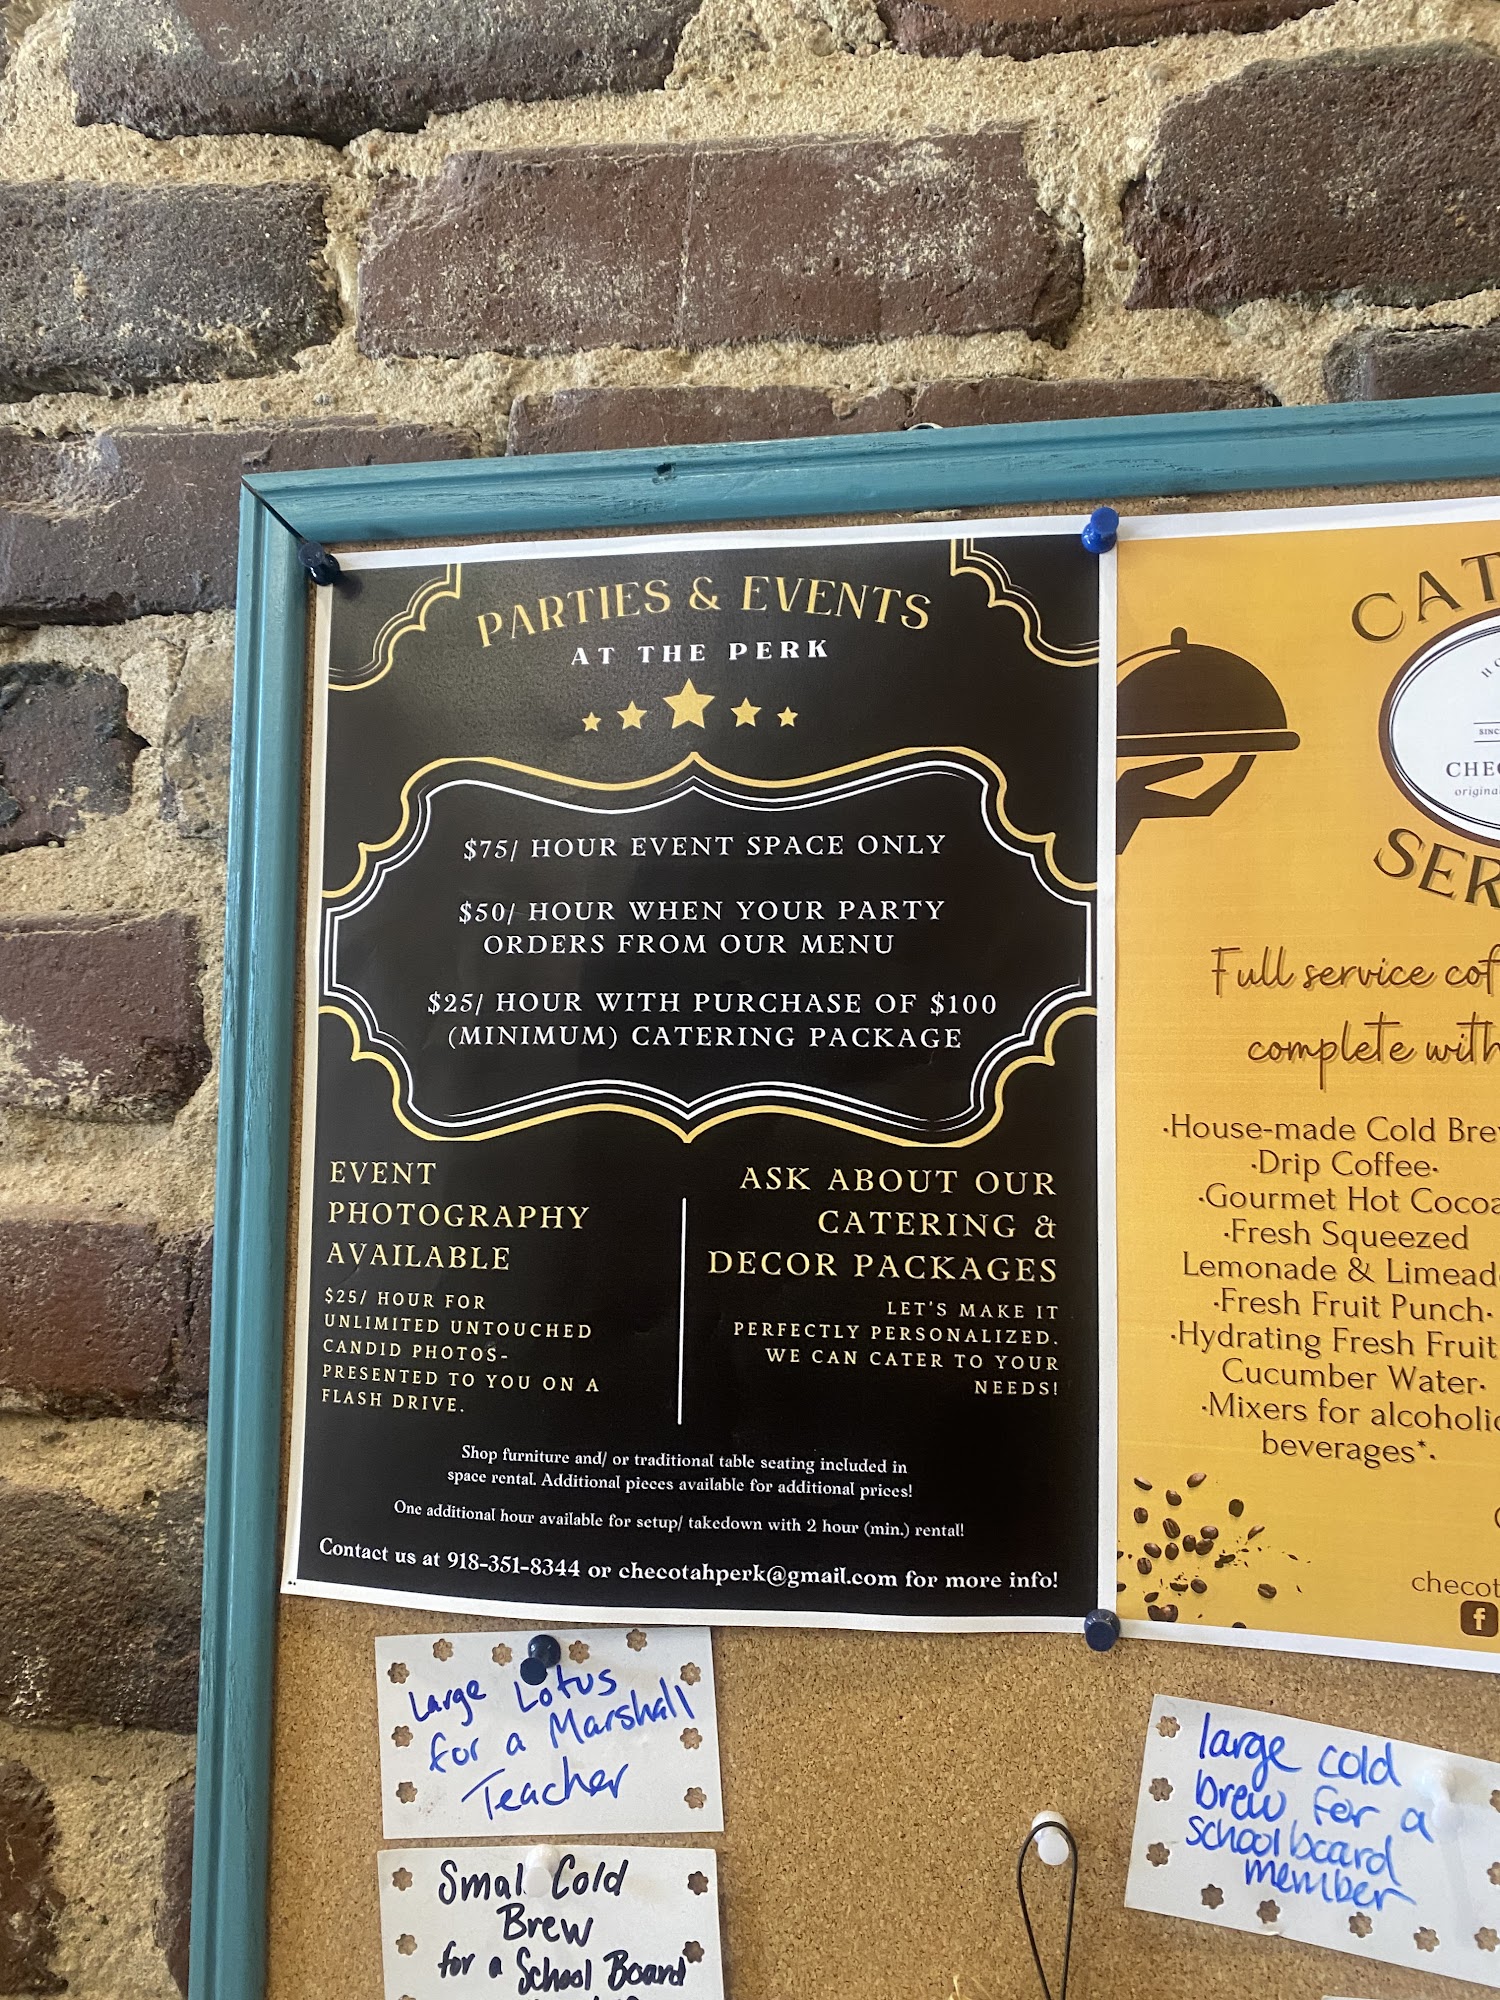 PARTIES & EVENTS
AT THE PERK
$75/ HOUR EVENT SPACE ONLY
$50/ HOUR WHEN YOUR PARTY
ORDERS FROM OUR MENU
$25/ HOUR WITH PURCHASE OF $100
(MINIMUM) CATERING PACKAGE
EVENT
PHOTOGRAPHY
AVAILABLE
$25/ HOUR FOR
UNLIMITED UNTOUCHED
CANDID PHOTOS-
PRESENTED TO YOU ON A
FLASH DRIVE.
ASK ABOUT OUR
CATERING &
DECOR PACKAGES
LET'S MAKE IT
PERFECTLY PERSONALIZED.
WE CAN CATER TO YOUR
NEEDS!
Shop furniture and/ or traditional table seating included in
space rental. Additional pieces available for additional prices!
One additional hour available for setup/ takedown with 2 hour (min.) rental!
Contact us at 918-351-8344 or checotahperk@gmail.com for more info!
CAT
SINC
CHEC
origina
SER
Full service cof
complete with
·House-made Cold Brew
·Drip Coffee·
·Gourmet Hot Cocoa
·Fresh Squeezed
Lemonade & Limead
·Fresh Fruit Punch·
·Hydrating Fresh Fruit
Cucumber Water·
·Mixers for alcoholic
beverages*·
checot
f
Large Lotus
for a Marshall
Teacher
Small Cold
Brew
for a School Board
large cold
brew for a
school board
member